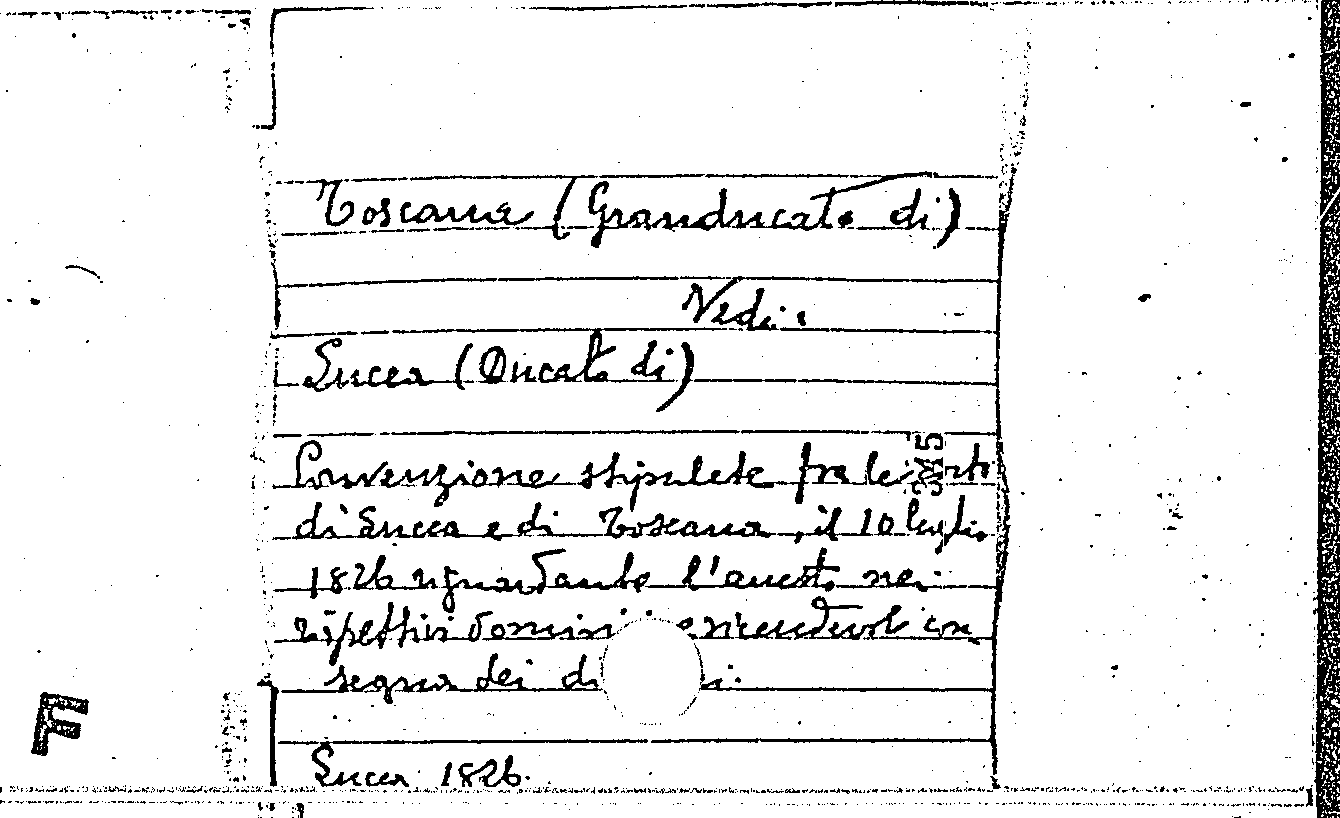 Toscana (Granducato di)
Vedi:
Lucca (Ducato di)
345
Convenzione stipulata fra le
di Lucca e di Toscana, il 10 luglio
1826 riguardante l'arresto nei
rispettivi con
segna dei
Lucca 1826.
F